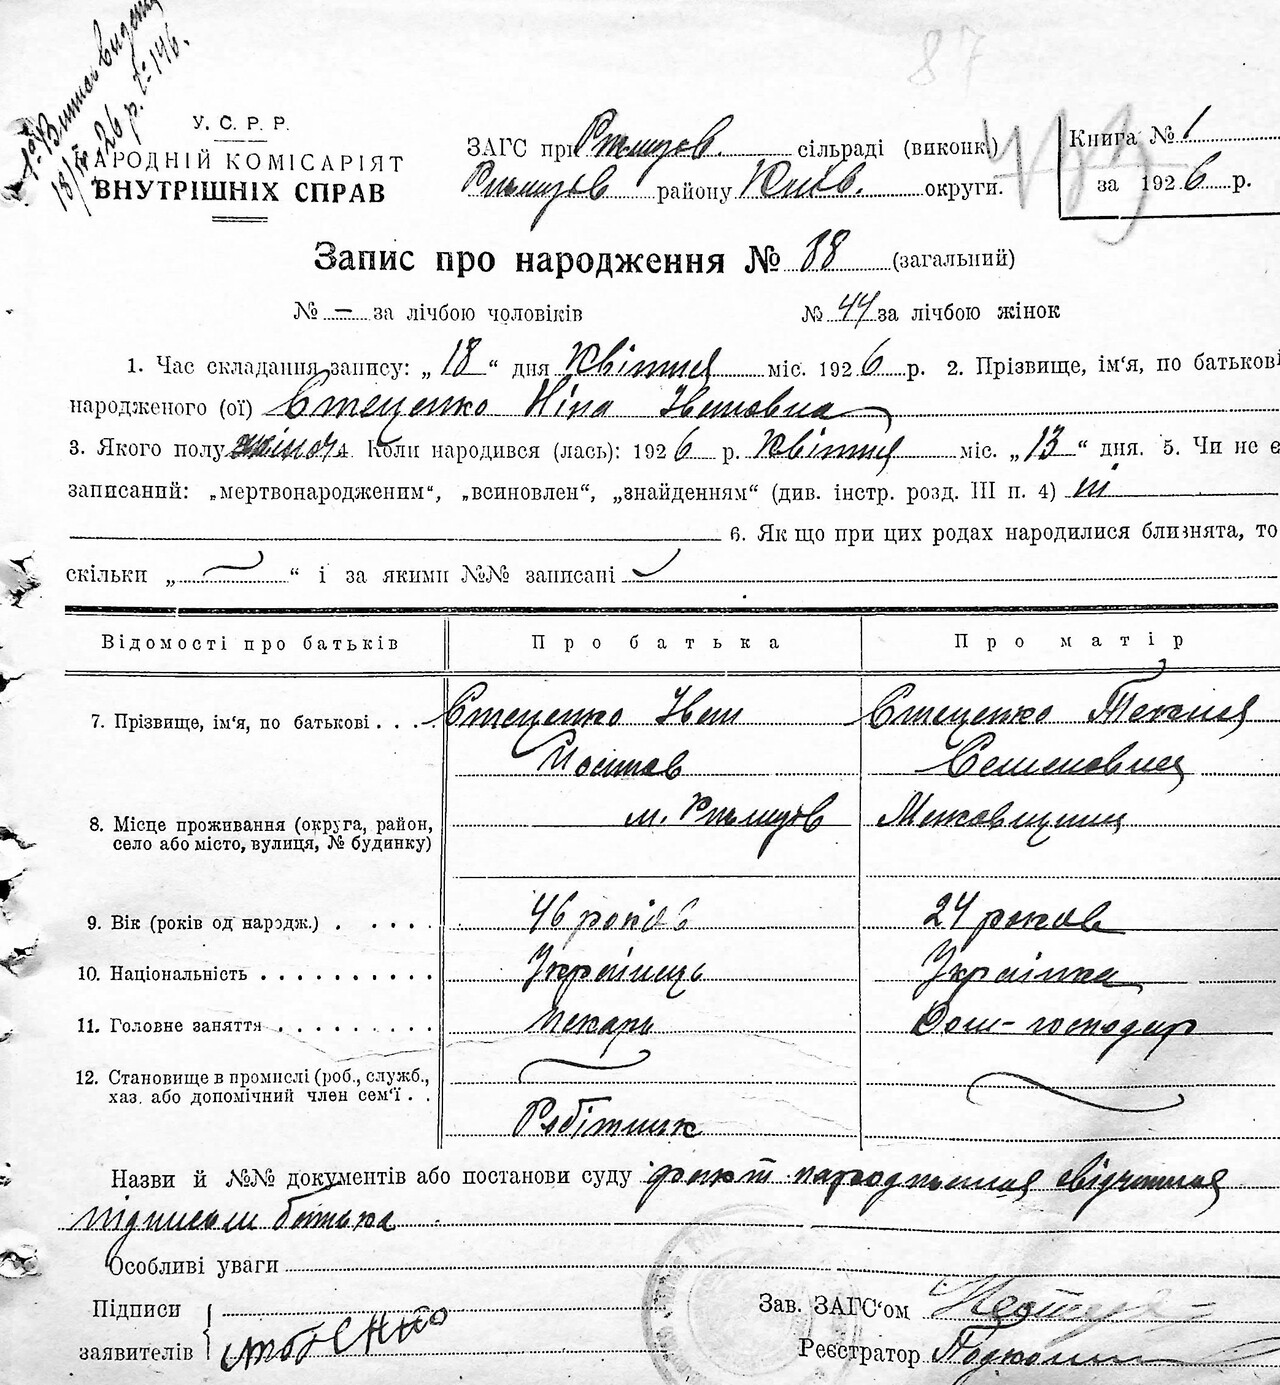 87
У. С. Р. Р.
НАРОДНІЙ КОМІСАРІЯТ
ВНУТРІШНІХ СПРАВ
18/IV 26 р. № 146.
ЗАГС при Ржищов. сільраді (виконк.)
Ржищов району Київ. округи.
Книга № 1
за 1926 р.
Запис про народження № 88 (загальний)
№ — за лічбою чоловіків № 44 за лічбою жінок
1. Час складання запису: „18“ дня Квітня міс. 1926 р. 2. Прізвище, ім‘я, по батькові
народженого (ої) Стеценко Ніна Івановна
3. Якого полу жіноч. 4. Коли народився (лась): 1926 р. Квітня міс. „13“ дня. 5. Чи не є
записаний: „мертвонародженим“, „всиновлен“, „знайденням“ (див. інстр. розд. III п. 4) ні
6. Як що при цих родах народилися близнята, то
скільки „ “ і за якими №№ записані
Відомості про батьків Про батька Про матір
7. Прізвище, ім‘я, по батькові . . . Стеценко Іван Стеценко Текля
Семеновна
8. Місце проживання (округа, район,
село або місто, вулиця, № будинку)
м. Ржищов
9. Вік (років од народж.) . . . . . 46 років 24 років
10. Національність . . . . . . . . . . Українець Українка
11. Головне заняття . . . . . . . . . Пекарь Дом-господар
12. Становище в промислі (роб., служб.,
хаз. або допомічний член сем‘ї . .
Робітник
Назви й №№ документів або постанови суду факт народження свідчення
підписом батька
Особливі уваги
Підписи
заявителів
Зав. ЗАГС‘ом
Реєстратор